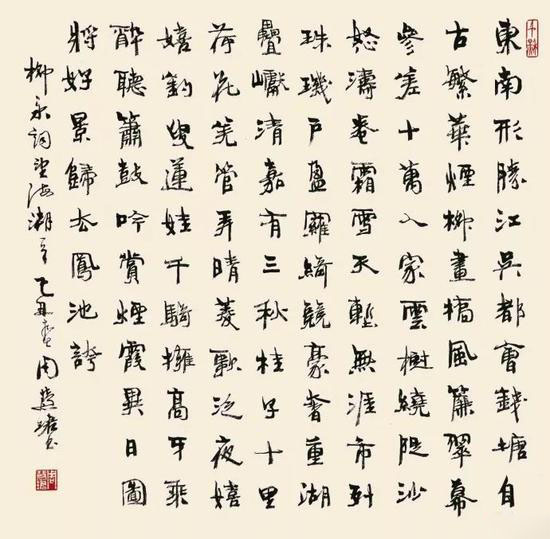 東南形勝江吳都會錢塘自
古繁華煙柳畫橋風簾翠幕
參差十萬人家雲樹繞堤沙
怒濤卷霜雪天塹無涯市列
珠璣戶盈羅綺競豪奢重湖
疊巘清嘉有三秋桂子十里
荷花羌管弄晴菱歌泛夜嬉
嬉釣叟蓮娃千騎擁高牙乘
醉聽簫鼓吟賞煙霞異日圖
將好景歸去鳳池誇
柳永詞望海潮乙周